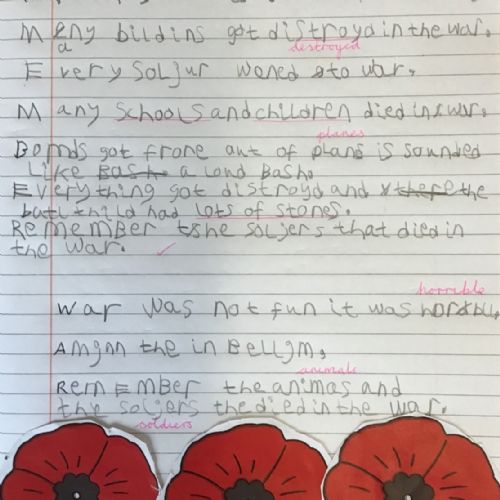 Many bildins got distroyd in the war.
destroyed
Every Soljur woned to war.
Many schools and children died in war.
planes
Bomds got frone out of plans is sounded
Like a loud Bash.
Everything got distroyd and the
batl thild had lots of stones.
Remember the soljers that died in
the war.
horrible
War was not fun it was
Amgnn the in Bellgm.
animals
RemEmber the animas and
the soljers the died in the war.
soldiers